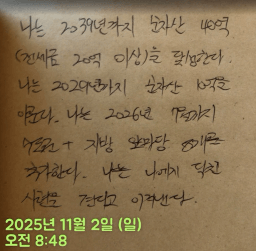 나는 2039년까지 순자산 40억
(전세금 20억 이상)을 달성한다.
나는 2029년까지 순자산 10억을
이룬다. 나는 2026년 7월까지
+ 지방
추가한다. 나는 나에게 닥친
시련을 견디고 이겨낸다.
2025년 11월 2일 (일)
오전 8:48